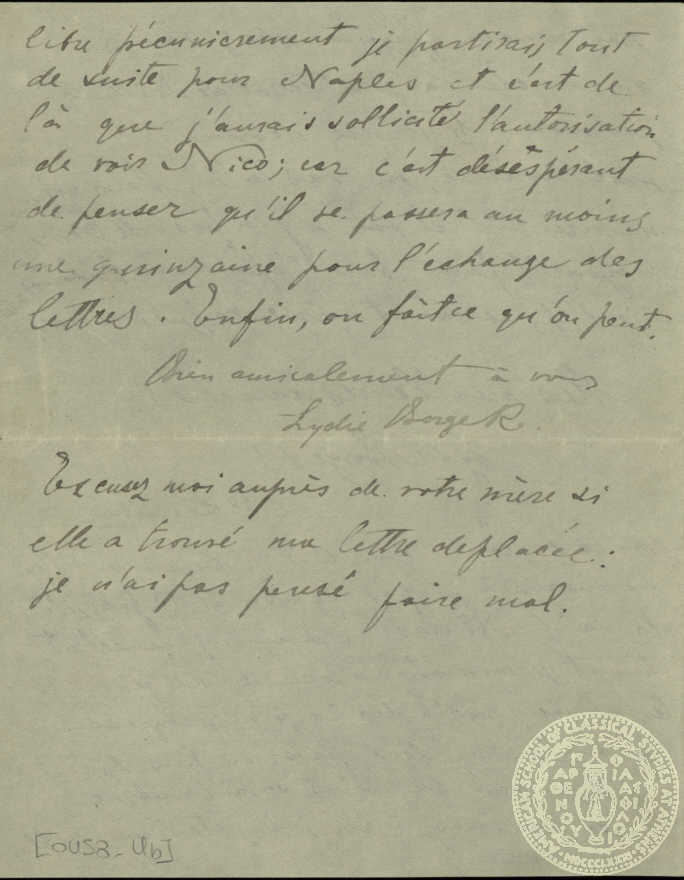 libre pécunièrement je partirais tout
de suite pour Naples et c'est de
là que j'aurais sollicité l'autorisation
de voir Nico; car c'est désespérant
de penser qu'il se passera au moins
une quinzaine pour l'échange des
lettres. Enfin, on fait ce qu'on peut.
Bien amicalement à vous
Lydie Borger.
Excusez moi auprès de votre mère si
elle a trouvé ma lettre deplacée:
je n'ai pas pensé faire mal.
[0058-Ub]
AMERICAN SCHOOL OF CLASSICAL STUDIES AT ATHENS
ΠΑΡΘΕΝΟΥ ΦΙΛΑΣ ΦΙΛΟΙ
MDCCCLXXXI